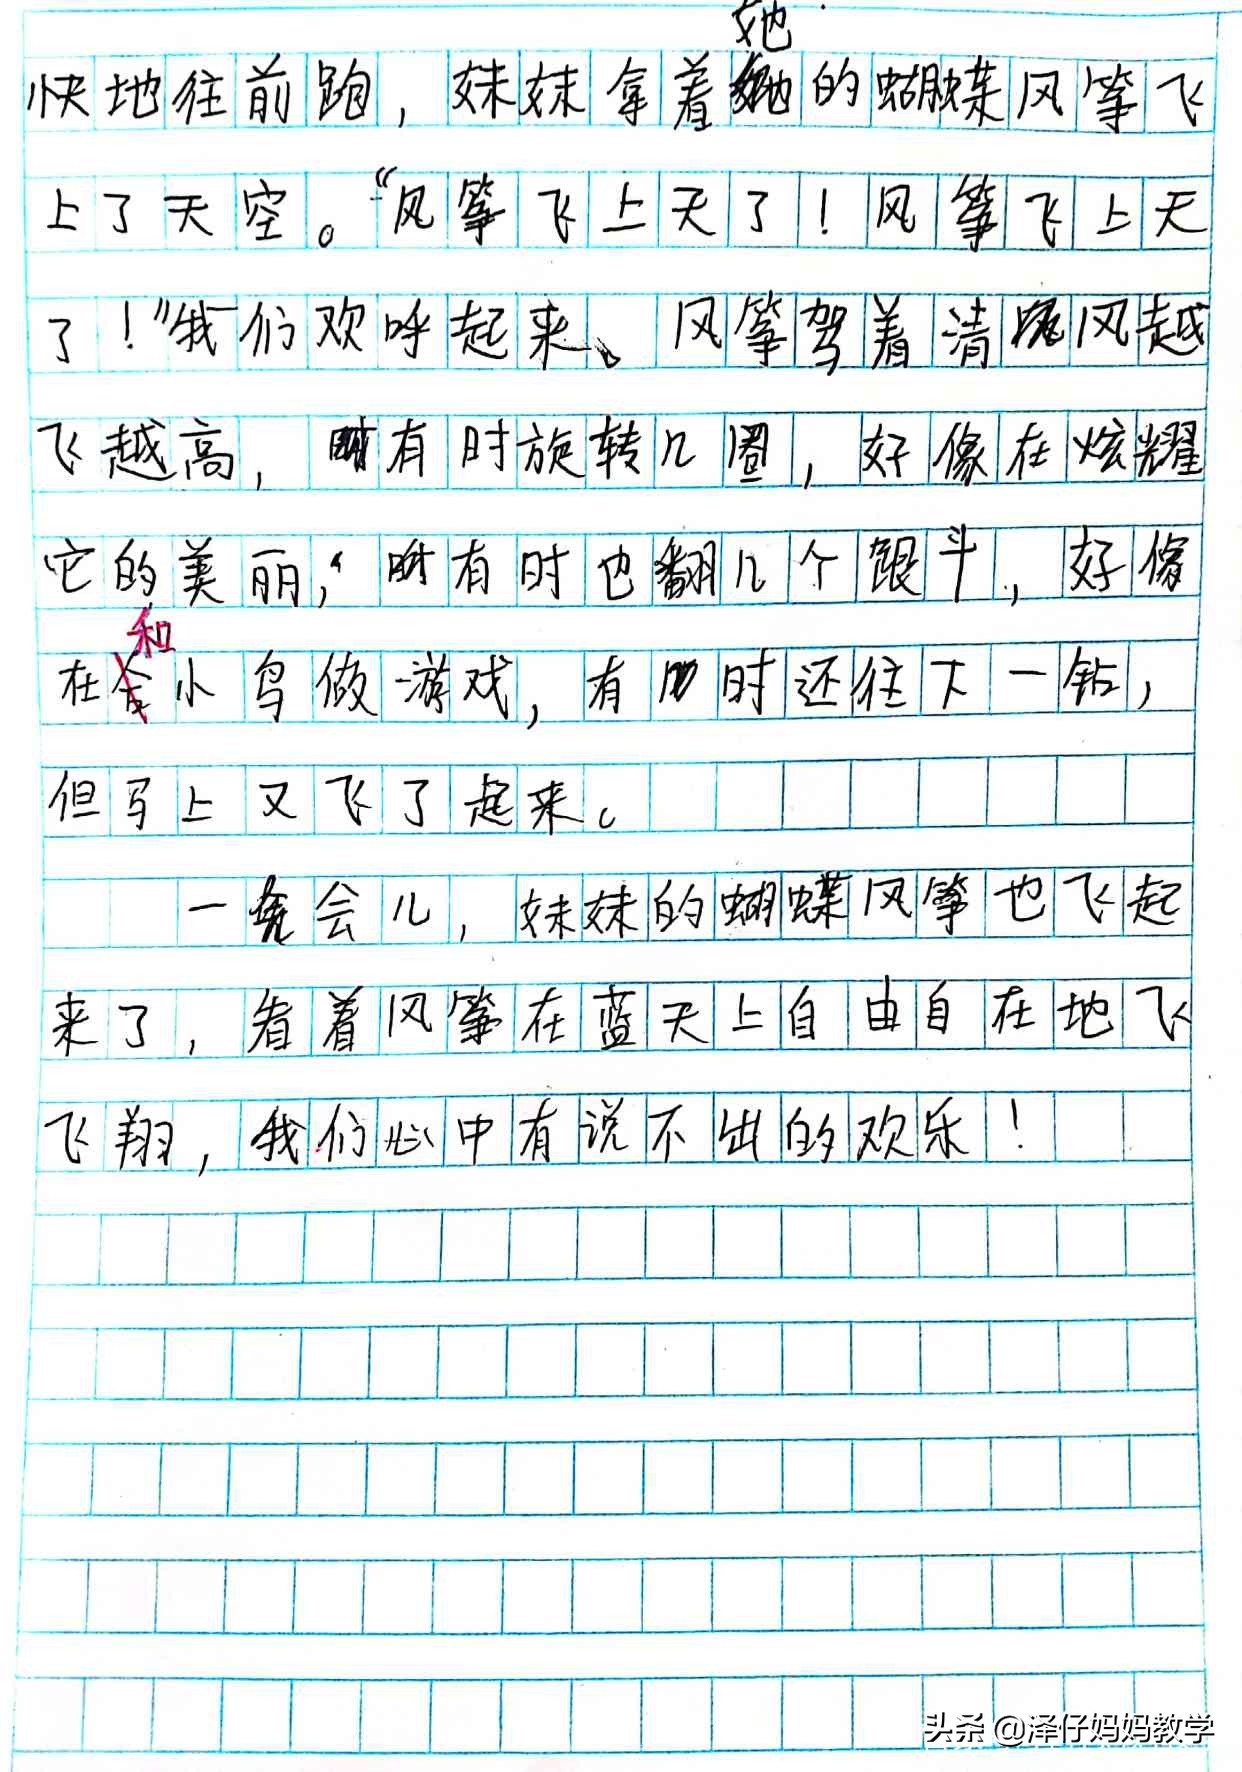 她
快地往前跑，妹妹拿着的蝴蝶风筝飞
上了天空。“风筝飞上天了！风筝飞上天
了！”我们欢呼起来。风筝驾着清风越
飞越高，有时旋转几圈，好像在炫耀
它的美丽，有时也翻几个跟斗，好像
和
在小鸟做游戏，有时还往下一钻，
但马上又飞了起来。
一会儿，妹妹的蝴蝶风筝也飞起
来了，看着风筝在蓝天上自由自在地飞
飞翔，我们心中有说不出的欢乐！
头条 @泽仔妈妈教学